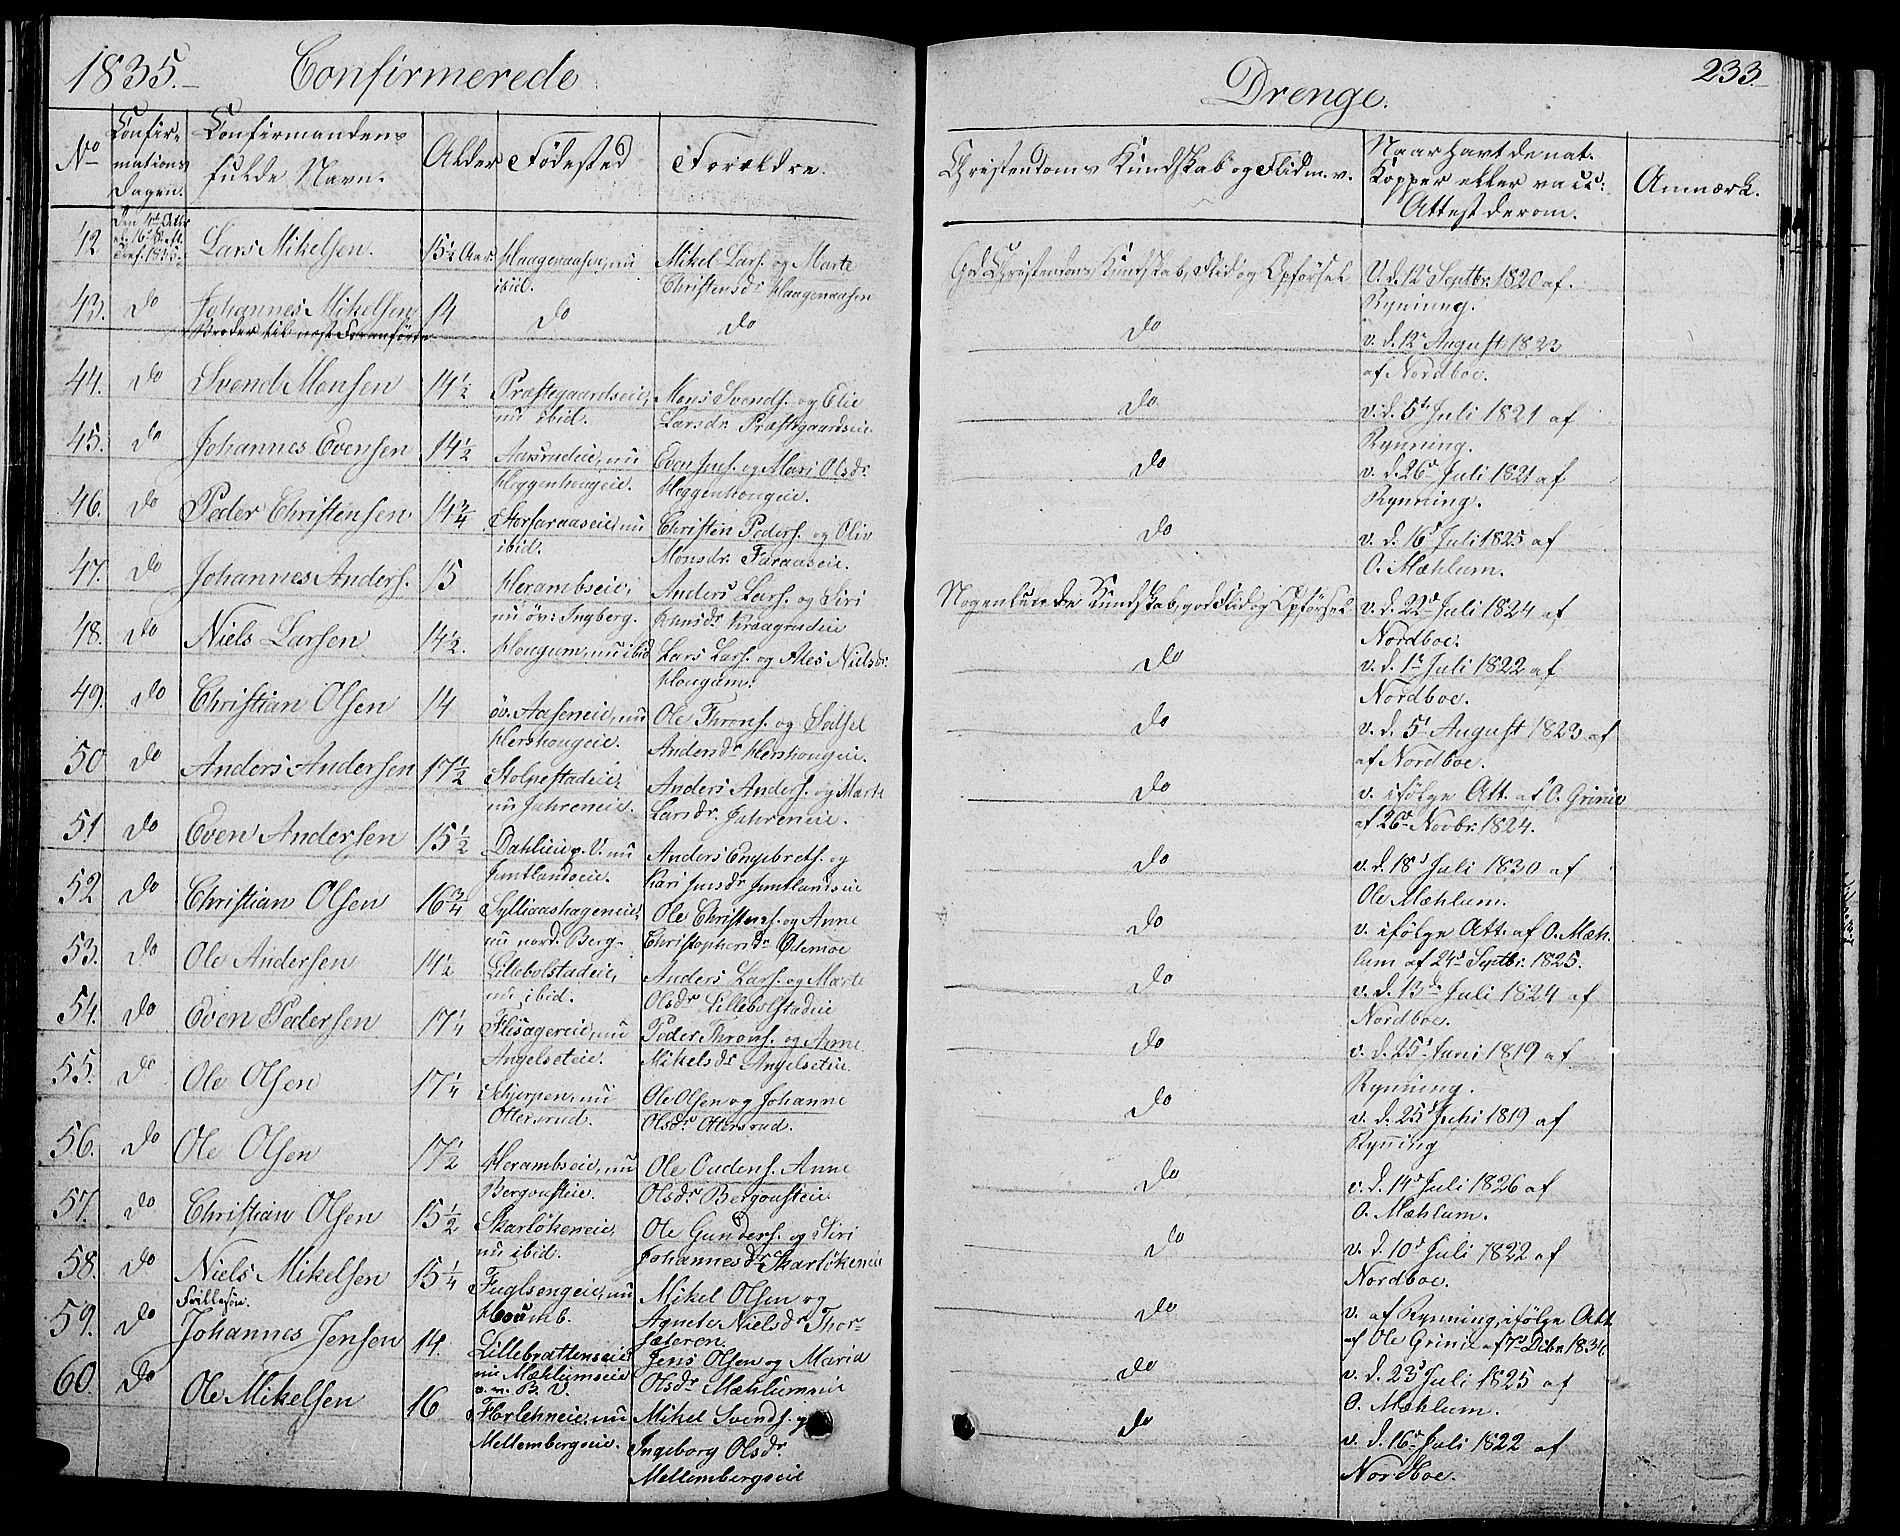 1835.
Confirmerede
Drenge.
233.
No
Confir-
mations
Dagen.
Confirmandens
fulde Navn.
Alder
Fødested
Forældre.
Christendoms Kundskab og Flid m. v.
Naar havt de nat.
Kopper eller vacc:
Attest derom.
Anmærk.
42
Lars Mikelsen.
15½ Aar
Haagenaasen, nu
ibid.
Mikel Lars. og Marte
Christensdr Haagenaasen
Gd Christendoms Kundskab, Flid og Opførsel
V. d. 12 Septbr. 1820 af
Rynning.
43.
do
Johannes Mikelsen
14
do
do
do
v. d. 12 August 1823
af Nordboe.
44.
do
Svend Monsen
14½
Præstegaardseie,
nu ibid.
Mons Svends. og Elie
Larsdr. Præstegaardseie
do
v. d. 5t Juli 1821 af
Rynning.
45.
do
Johannes Evensen
14½
Aasrudeie, nu
Heggenhougeie.
Even Jens. og Mari Olsdr
Heggenhougeie.
do
v. d. 26 Juli 1821 af
Rynning.
46.
do
Peder Christensen
14¾
Storfaraaseie, nu
ibid.
Christen Peders. og Oliv
Monsdr. Faraaseie.
do
v. d. 16 Juli 1825 af
O. Mæhlum.
47.
do
Johannes Anders.
15
Herambseie,
nu öv: Ingberg.
Anders Lars. og Siri
Kraagrudeie
Nogenlunde Kundskab, god Flid og Opførsel
v. d. 22d Juli 1824 af
Nordboe.
48.
do
Niels Larsen
14½.
Hougum, nu ibid
Lars Lars. og Ales Nielsdr.
Hougum.
do
v. d. 1t Juli 1822 af
Nordboe.
49.
do
Christian Olsen
14
öv. Aasereie, nu
Hershougeie.
Ole Throns. og Sidsel
Andersdr Hershougeie.
do
v. d. 5t August 1823 af
af Nordboe.
50
do
Anders Andersen
17½
Stolpestadeie,
nu Jahreneie.
Anders Anders. og Marte
Larsdr. Jahreneie.
do
v. ifølge Att. af O. Grinie
af 26d Novbr. 1824.
51
do
Even Andersen
15½
Dahlieie p. V. nu
Jemtlandseie.
Anders Engebrets. og
Kari Jensdr Jemtlandseie
do
v. d. 18d Juli 1830 af
Ole Mæhlum.
52
do
Christian Olsen
16¾
Sylliaashageneie,
nu nord. Berg.
Ole Christens. og Anne
Christophersdr. Odemoe
do
v. ifølge Att. af O. Mæh-
lum af 24d Septbr. 1825.
53.
do
Ole Andersen
14½
Lillebolstadeie,
nu ibid.
Anders Lars. og Marte
Olsdr Lillebolstadeie
do
v. d. 13de Juli 1824 af
Nordboe.
54.
do
Even Pedersen
17¼
Flisagereie, nu
Angelseteie.
Peder Throns. og Anne
Mikelsdr Angelseteie.
do
v. d. 25d Juni 1819 af
Rynning.
55.
do
Ole Olsen
17¼
Skjerpen, nu
Ottersrud.
Ole Olsen og Johanne
Olsdr. Ottersrud.
do
v. d. 25d Juni 1819 af
Rynning
56.
do
Ole Olsen
17½
Herambseie, nu
Bergousteie.
Ole Oudens. Anne
Olsdr Bergousteie
do
v. d. 14d Juli 1826 af
O. Mæhlum.
57.
do
Christian Olsen
15½
Skarlökeneie,
nu ibid.
Ole Gunders. og Siri
Johannesdr Skarlökeneie
do
v. d. 10d Juli 1822 af
Nordboe.
58.
do
Niels Mikelsen
15¼
Fuglsengeie, nu
Mikel Olsen og
Agnete Nielsdr Thor-
sæteren.
do
v. af Rynning, ifølge Att
af Ole Grinie af 7d Debr. 1834.
59.
do
Frillesøn.
Johannes Jensen
14.
Lillebrattenseie,
nu Mæhlumseie
Jens Olsen og Maria
Olsdr Mæhlumeie
do
v. d. 23d Juli 1825 af
O. Mæhlum.
60.
do
Ole Mikelsen
16
Horlehneie, nu
Mellembergseie.
Mikel Svends. og
Ingeborg Olsdr.
Mellembergseie
do
v. d. 16d Juli 1822 af
Nordboe.